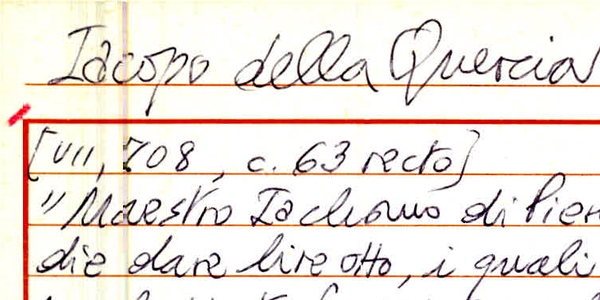 Iacopo della Quercia
[VII, 708, c. 63 recto]
"Maestro Iachomo di Pier
die dare lire otto, i quali